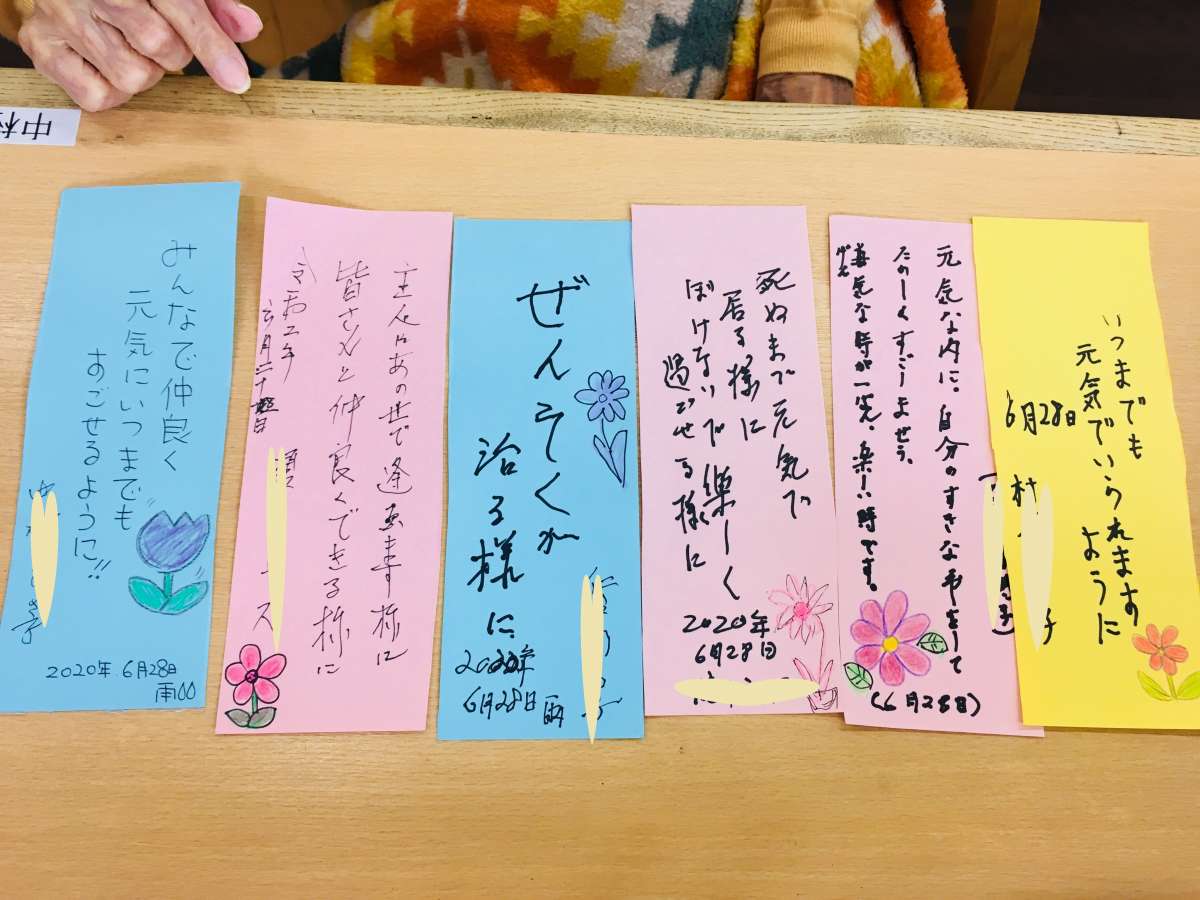 いつまでも
元気でいられます
ように
6月28日
村 子
元気な内に。自分のすきな事をして
たのしくすごしませう。
げん
気な時が一 、楽しい時です。
(6月28日)
死ぬまで元気で
居る様に
ぼけないで楽しく
過ごせる様に
2020年
6月28日
ぜんそくが
治る様に、
2020年
6月28日 雨
主人にあの世で逢 様に
皆さんと仲良くできる様に
令和二年
六月二十 日
みんなで仲良く
元気にいつまでも
すごせるように!!
2020年.6月28日
雨
中